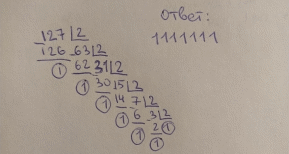 ответ:
127 2
1111111
126 63 2
1 62 31 2
1 30 15 2
1 14 7 2
1 6 3 2
1 2 1
1